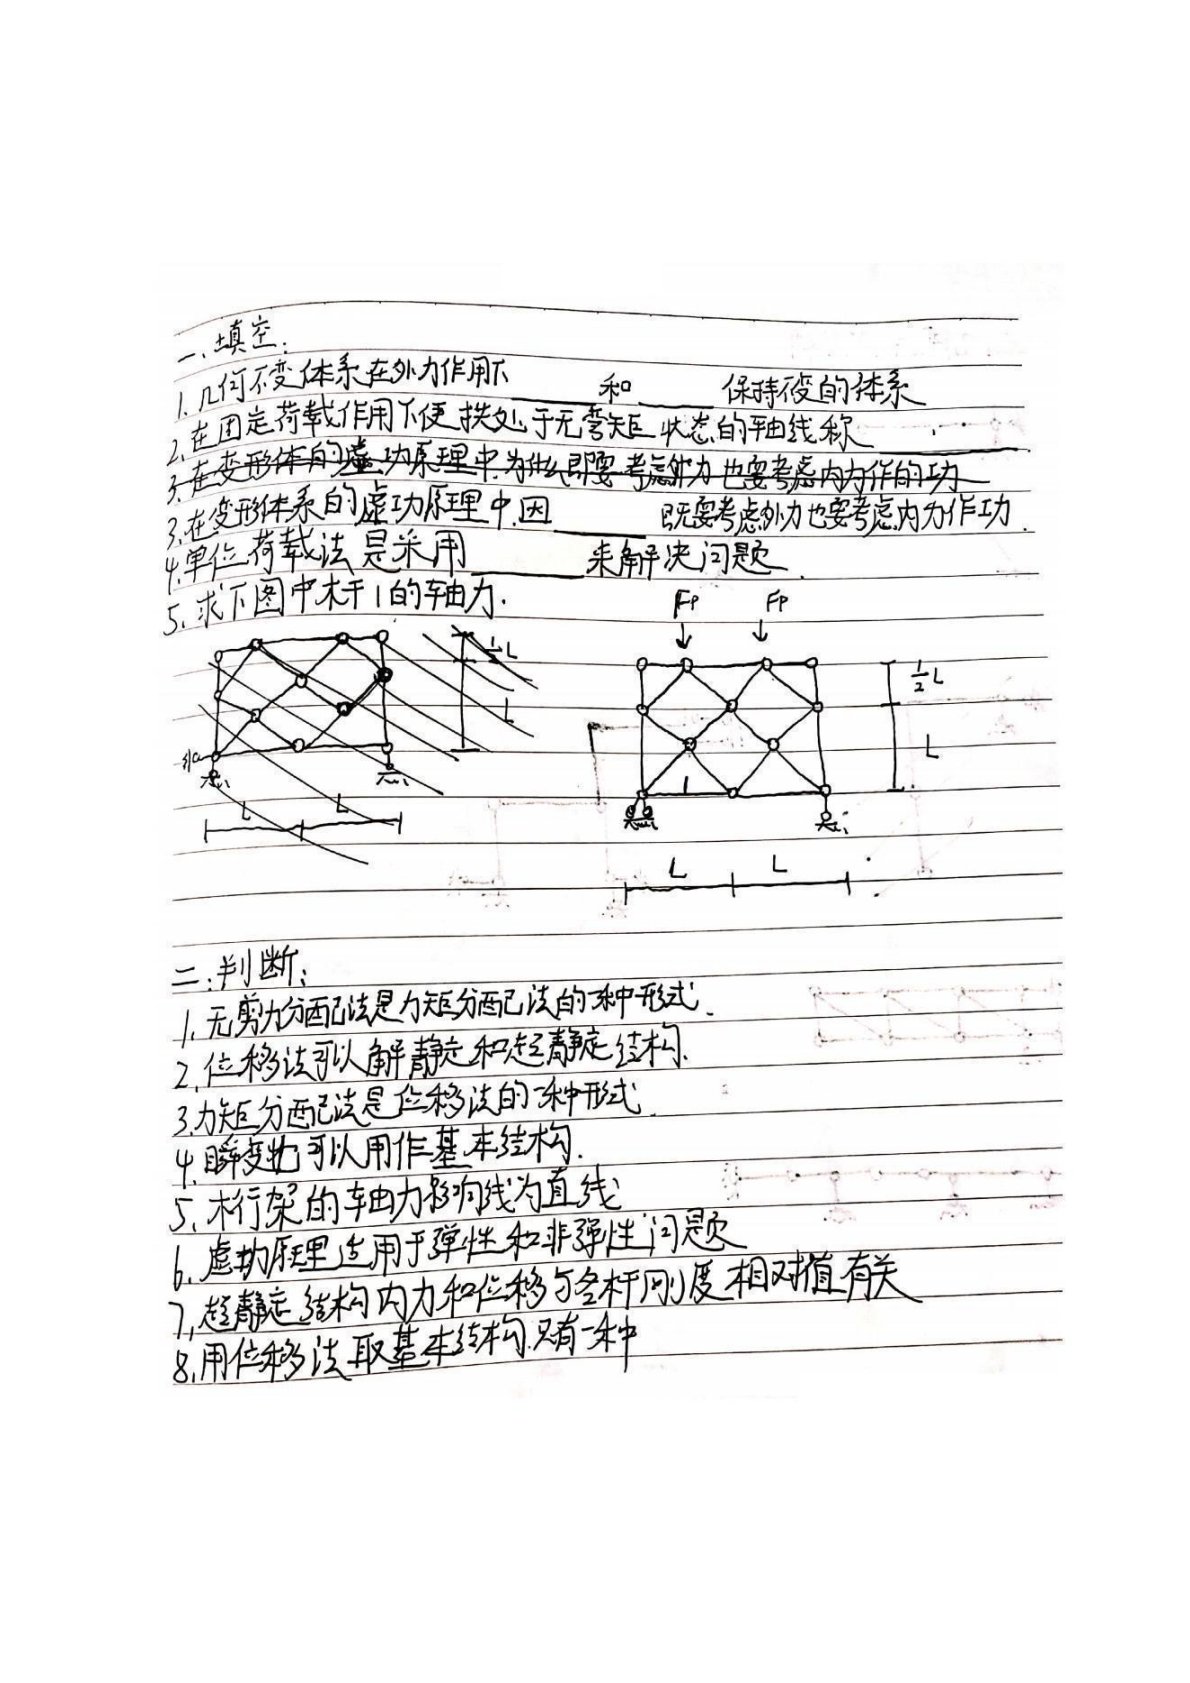 一、填空:
1. 几何不变体系在外力作用下____和____保持不变的体系
2. 在固定荷载作用下使拱处于无弯矩状态的轴线称____.
3. 在变形体的虚功原理中为什么即要考虑外力也要考虑内力作的功
3. 在变形体系的虚功原理中,因____既要考虑外力也要考虑内力作功.
4. 单位荷载法是采用____来解决问题.
5. 求下图中杆1的轴力.
Fp Fp
½L
L
L L
½L
L
1
L L
二:判断:
1. 无剪力分配法是力矩分配法的一种形式.
2. 位移法可以解静定和超静定结构.
3. 力矩分配法是位移法的一种形式.
4. 瞬变也可以用作基本结构.
5. 桁架的轴力影响线为直线
6. 虚功原理适用于弹性和非弹性问题
7. 超静定结构内力和位移与各杆刚度相对值有关
8. 用位移法取基本结构只有一种